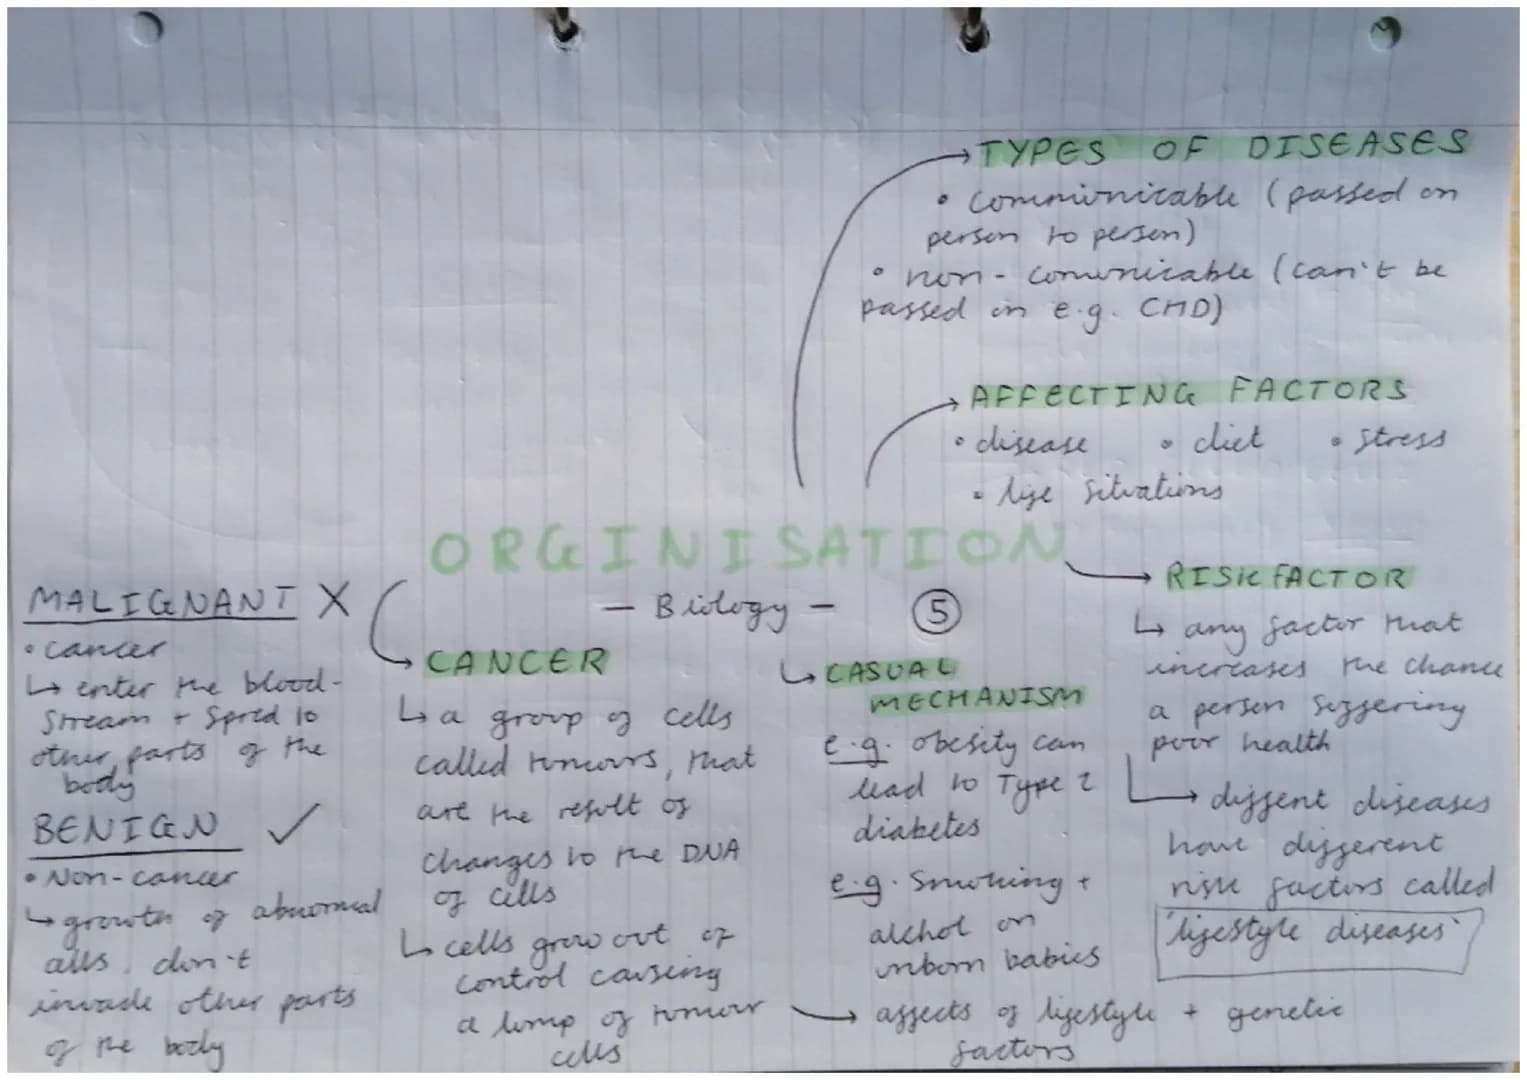 TYPES OF DISEASES
• communicable (passed on
person to person)
• non-comunicable (can't be
passed on e.g. CHD)
AFFECTING FACTORS
• disease • diet • stress
• life situations
ORGINISATION
- Biology - 5
RISK FACTOR
↳ any factor that
increases the chance
a person suffering
poor health
→ diffent diseases
have different
risk factors called
'lifestyle diseases'
CASUAL
MECHANISM
e.g. obesity can
lead to Type 2
diabetes
e.g. Smoking +
alchol on
unborn babies
→ affects of lifestyle + genetic
factors
CANCER
↳ a group of cells
called tumours, that
are the result of
changes to the DNA
of cells
↳ cells grow out of
control causing
a lump of tumour
cells
MALIGNANT X
• cancer
↳ enter the blood-
stream + spred to
other parts of the
body
BENIGN ✓
• Non-cancer
↳ growth of abnormal
cells. don't
invade other parts
of the body